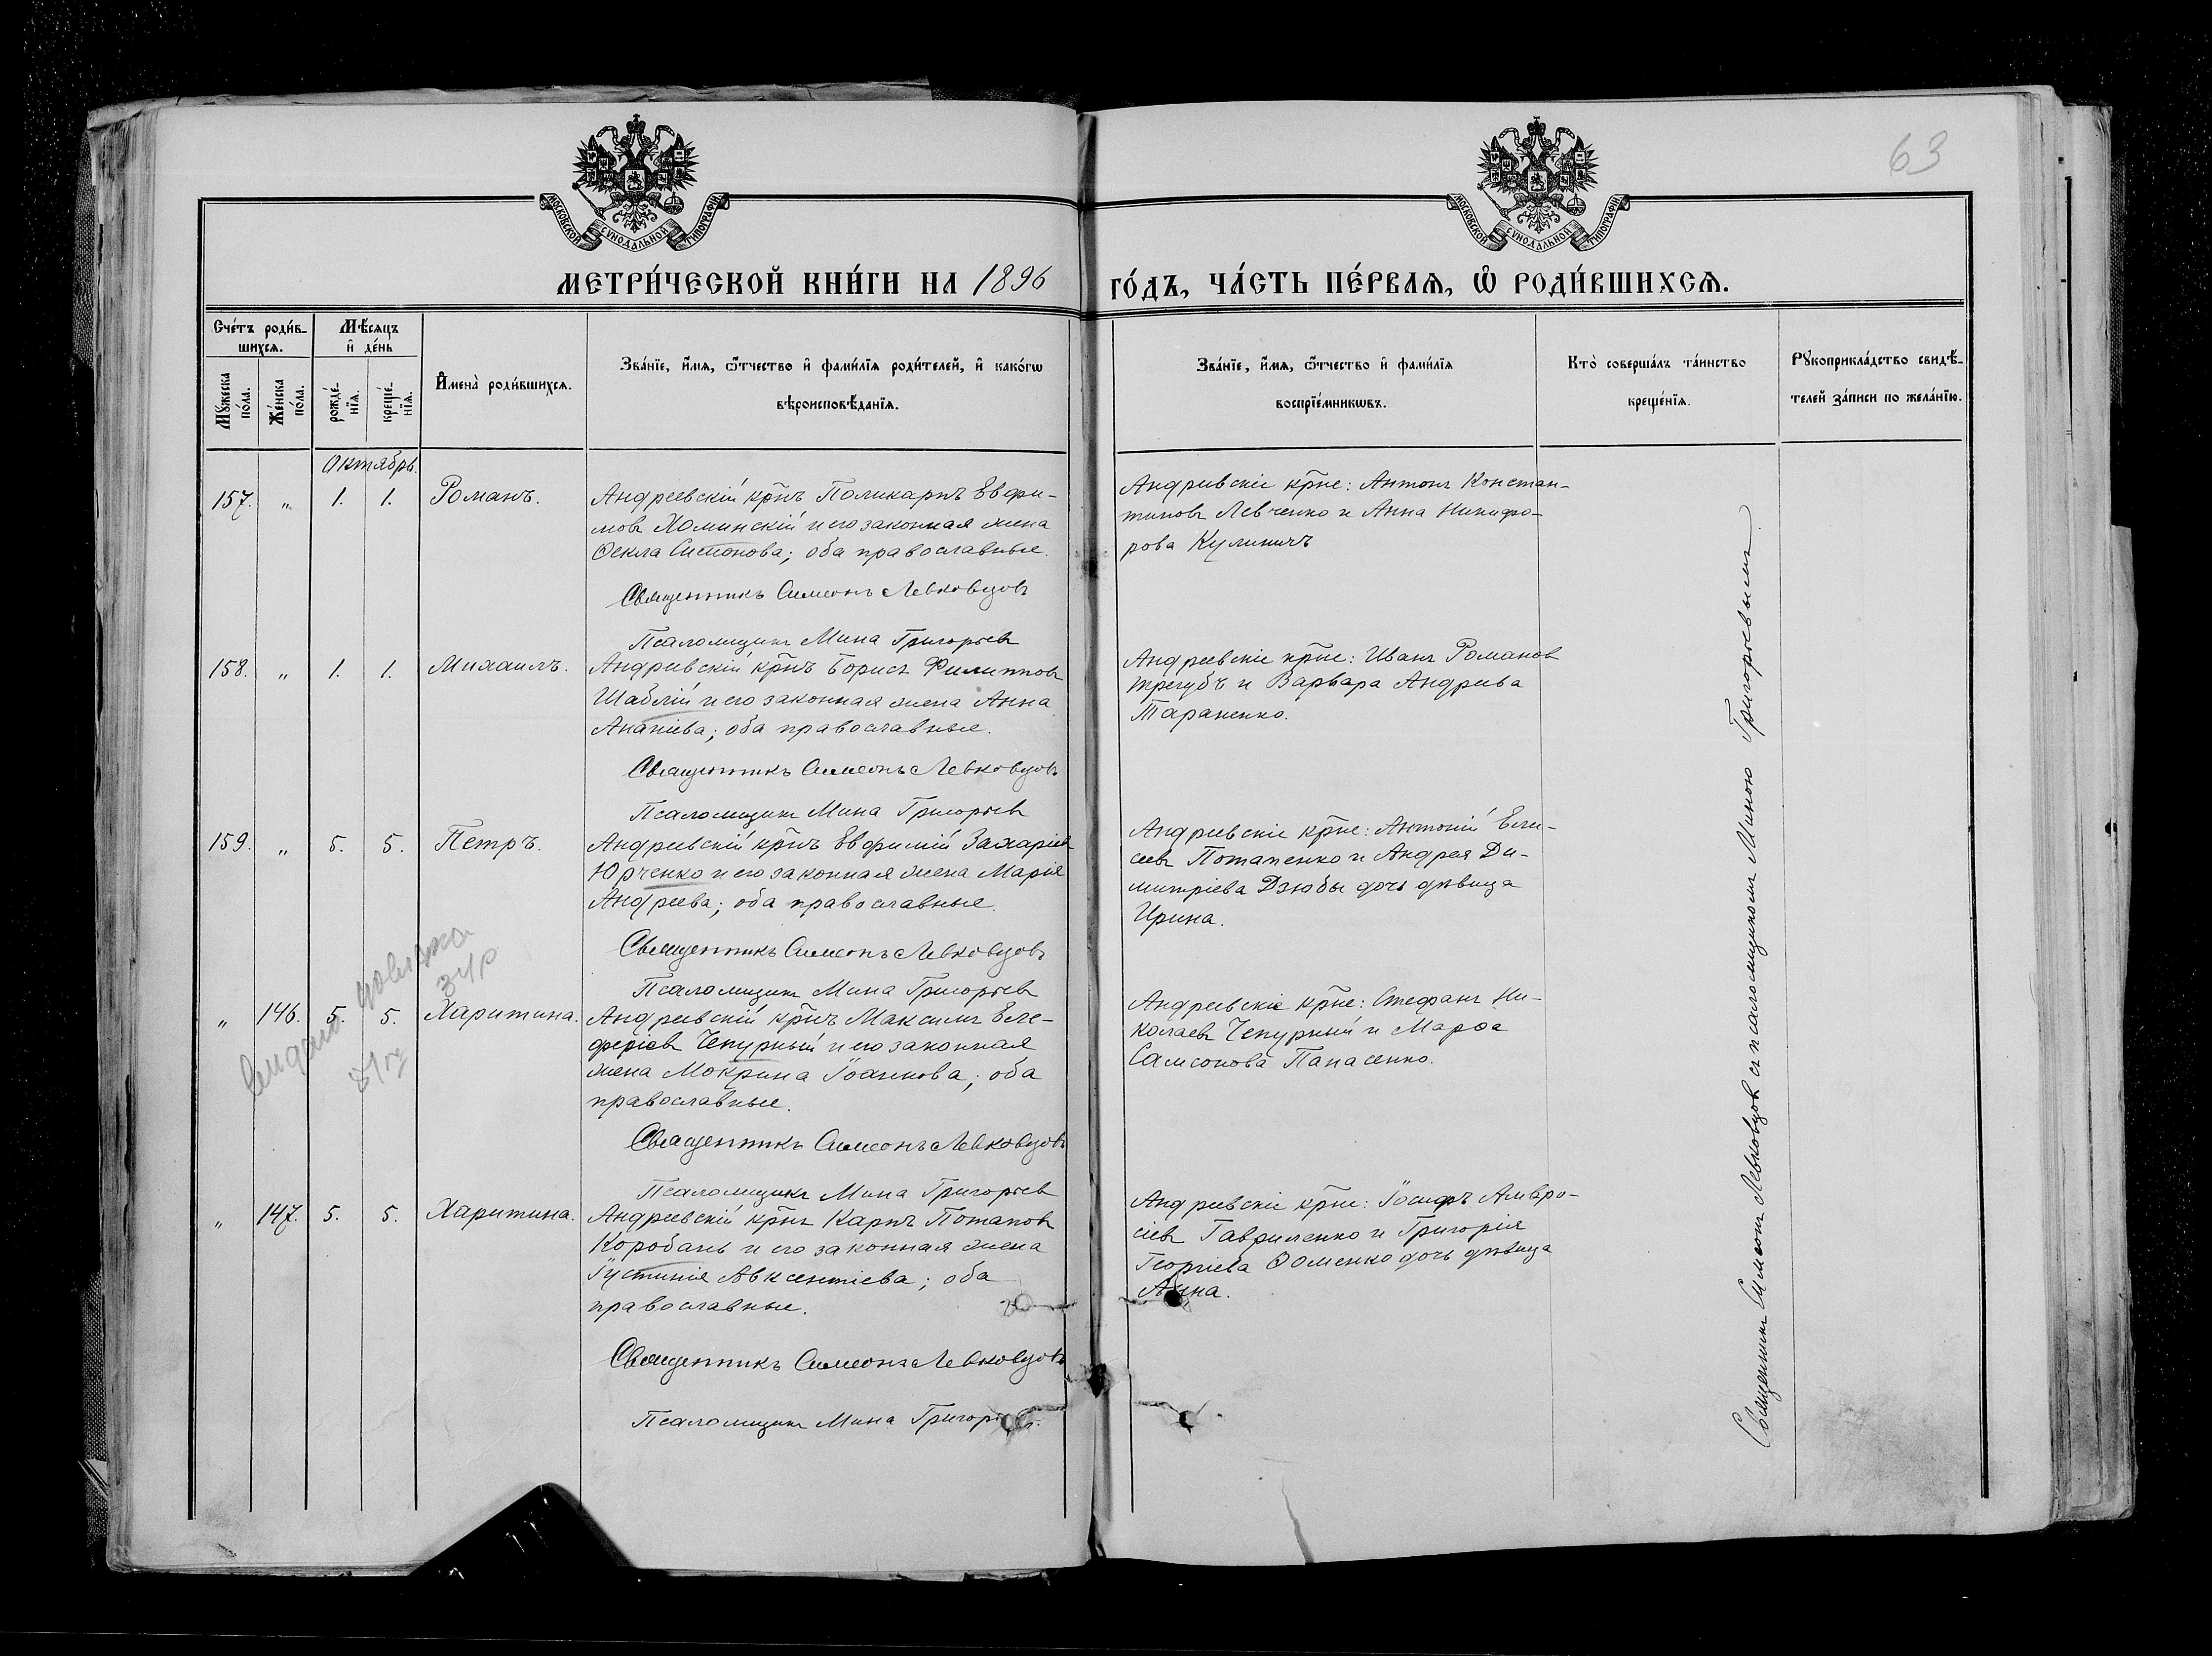 63
МОСКОВСКОЙ СѴНОДАЛЬНОЙ ТИПОГРАФІИ
МОСКОВСКОЙ СѴНОДАЛЬНОЙ ТИПОГРАФІИ
МЕТРИ́ЧЕСКОЙ КНИ́ГИ НА 1896 ГО́ДЪ, ЧА́СТЬ ПЕ́РВАѦ, Ѡ҆ РОДИ́ВШИХСѦ.
Сче́тъ роди́в-
шихсѧ.
Мꙋ́жеска
по́ла.
Же́нска
по́ла.
Мѣ́сѧцъ
и҆ де́нь
рожде́-
нїѧ.
креще́-
нїѧ.
И҆мена̀ роди́вшихсѧ.
Зва́нїе, и҆́мѧ, ѻ҆́тчество и҆ фами́лїѧ роди́телей, и҆ како́гѡ
вѣроисповѣ́данїѧ.
Зва́нїе, и҆́мѧ, ѻ҆́тчество и҆ фами́лїѧ
воспрїе́мникѡвъ.
Кто̀ соверша́лъ та́инство
креще́нїѧ.
Рꙋкоприкла́дство свидѣ́-
телей за́писи по жела́нїю.
Октябрь.
157. „ 1. 1. Романъ.
Андреевскій крнъ Поликарпъ Евфи-
мовъ Хоминскій и его законная жена
Ѳекла Симонова; оба православные.
Священникъ Симеонъ Левковцовъ
Псаломщикъ Мина Григорьевъ
Андреевскіе крне: Антонъ Констан-
тиновъ Левченко и Анна Никифо-
рова Кулиничъ
158. „ 1. 1. Михаилъ.
Андреевскій крнъ Борисъ Филипповъ
Шаблій и его законная жена Анна
Ананіева; оба православные.
Священникъ Симеонъ Левковцовъ
Псаломщикъ Мина Григорьевъ
Андреевскіе крне: Иванъ Романовъ
Трегубъ и Варвара Андреева
Тараненко.
159. „ 5. 5. Петръ.
Андреевскій крнъ Евфимій Захаріевъ
Юрченко и его законная жена Марія
Андреева; оба православные.
Священникъ Симеонъ Левковцовъ
Псаломщикъ Мина Григорьевъ
Андреевскіе крне: Антоній Ели-
сеевъ Потапенко и Андрея Ди-
митріева Дзюбы дочь дѣвица
Ирина.
„ 146. 5. 5. Харитина.
Андреевскій крнъ Максимъ Еле-
феріевъ Чепурный и его законная
жена Мокрина Іоаннова; оба
православные.
Священникъ Симеонъ Левковцовъ
Псаломщикъ Мина Григорьевъ
Андреевскіе крне: Стефанъ Ни-
колаевъ Чепурный и Марѳа
Самсонова Панасенко.
„ 147. 5. 5. Харитина.
Андреевскій крнъ Карпъ Потаповъ
Коробань и его законная жена
Іустинія Авксентіева; оба
православные.
Священникъ Симеонъ Левковцовъ
Псаломщикъ Мина Григорьевъ.
Андреевскіе крне: Іосифъ Амвро-
сіевъ Гавриленко и Григорія
Георгіева Ѳоменко дочь дѣвица
Анна.
Священникъ Симеонъ Левковцовъ съ псаломщикомъ Миною Григорьевымъ